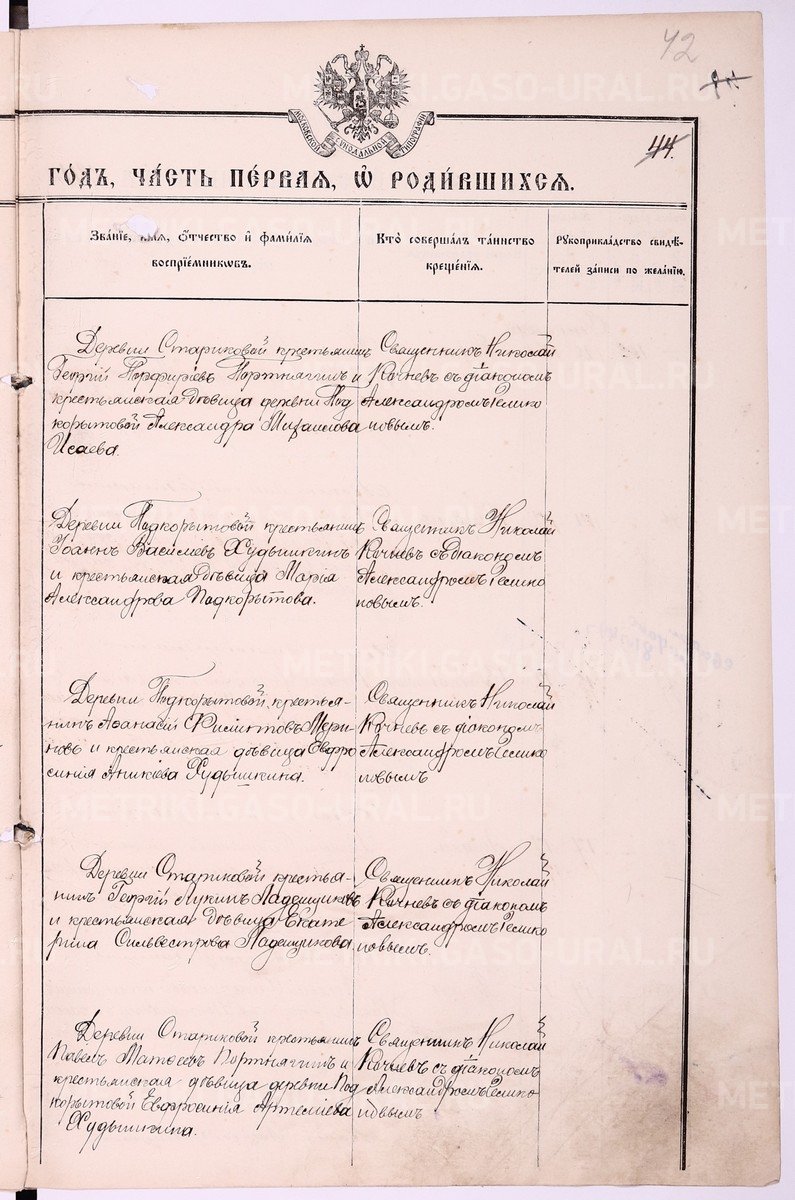 42
44.
МОСКОВСКОЙ СѴНОДАЛЬНОЙ ТИПОГРАФІИ
ГО́ДЪ, ЧА́СТЬ ПЕ́РВАЯ, Ѡ҆ РОДИ́ВШИХСЯ.
Зва́нїе, и҆́мя, ѻ҆́тчество и҆ фами́лїя
воспрїе́мникѡвъ.
Кто̀ соверша́лъ та́инство
креще́нїя.
Рꙋкоприкла́дство свидѣ́-
телей за́писи по жела́нїю.
Деревни Стариковой крестьянинъ
Георгій Порфиріевъ Портнягинъ и
крестьянская дѣвица деревни Под
корытовой Александра Михаилова
Исаева.
Священникъ Николай
Кочневъ съ діакономъ
Александромъ
новымъ.
Деревни Подкорытовой крестьянинъ
Іоаннъ Василіевъ Худышкинъ
и крестьянская дѣвица Марія
Александрова Подкорытова.
Священникъ Николай
Кочневъ съ діакономъ
Александромъ
новымъ.
Деревни Подкорытовой крестья-
нинъ Аѳанасій Филиповъ
новъ и крестьянская дѣвица Евфро
синія Аникіева Худышкина.
Священникъ Николай
Кочневъ съ діакономъ
Александромъ
новымъ
Деревни Стариковой крестья-
нинъ Георгій Лукинъ Ладейщиковъ
и крестьянская дѣвица Екате
рина Сильвестрова Ладейщикова.
Священникъ Николай
Кочневъ съ діакономъ
Александромъ
новымъ.
Деревни Стариковой крестьянинъ
Павелъ Матѳеевъ Портнягинъ и
крестьянская дѣвица деревни Под
корытовой Евфросинія Артеміева
Худышкина.
Священникъ Николай
Кочневъ съ діакономъ
Александромъ
новымъ.
METRIKI.GASO-URAL.RU